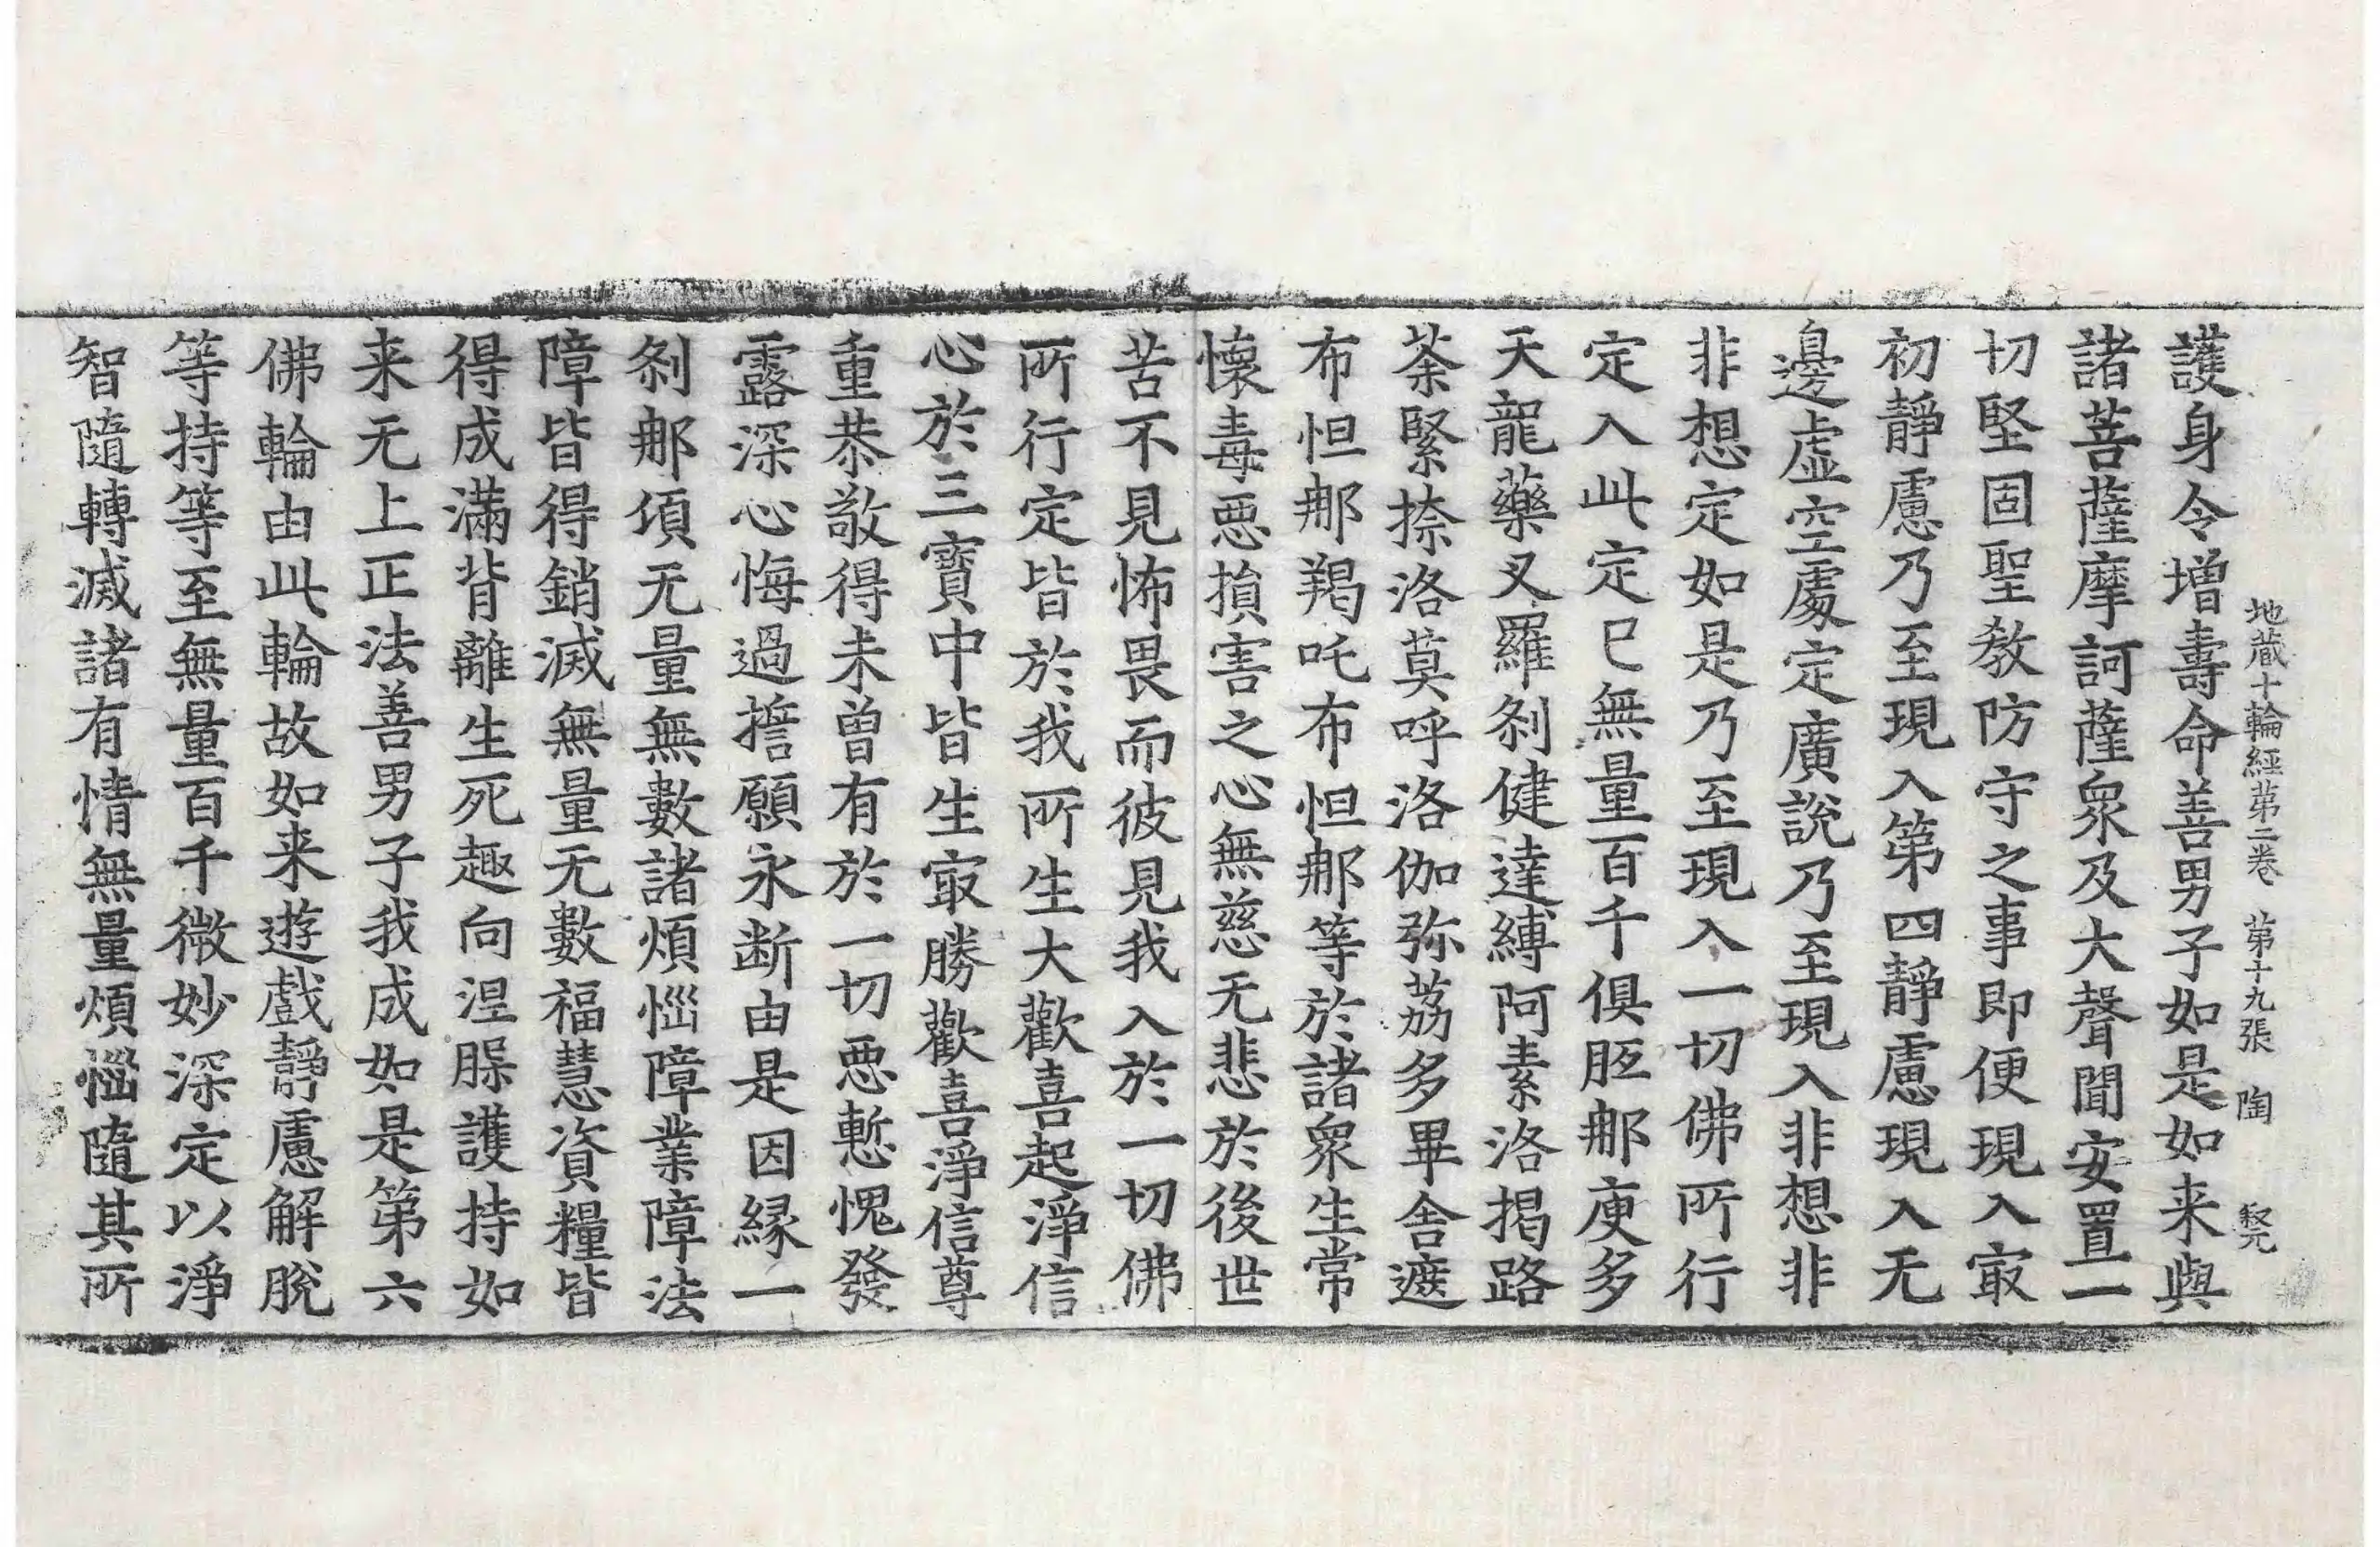 地蔵十輪經苐二卷 苐十九張 陶
護身令增壽命善男子如是如来與
諸菩薩摩訶薩衆及大聲聞安置一
切堅固聖教防守之事即便現入㝡
初靜慮乃至現入第四靜慮現入无
邊虛空處定廣說乃至現入非想非
非想定如是乃至現入一切佛所行
定入此定已無量百千俱胝那庾多
天龍藥叉羅刹健達縛阿素洛揭路
荼緊捺洛莫呼洛伽弥荔多畢舍遮
布怛那羯吒布怛那等於諸衆生常
懷毒惡損害之心無慈无悲於後世
苦不見怖畏而彼見我入於一切佛
所行定皆於我所生大歡喜起淨信
心於三寶中皆生㝡勝歡喜淨信尊
重恭敬得未曾有於一切惡慙愧發
露深心悔過誓願永断由是因縁一
刹那頃无量無數諸煩惱障業障法
障皆得銷滅無量无數福慧資糧皆
得成滿背離生死趣向涅槃護持如
来无上正法善男子我成如是第六
佛輪由此輪故如来遊戲靜慮解脫
等持等至無量百千微妙深定以淨
智隨轉滅諸有情無量煩惱隨其所